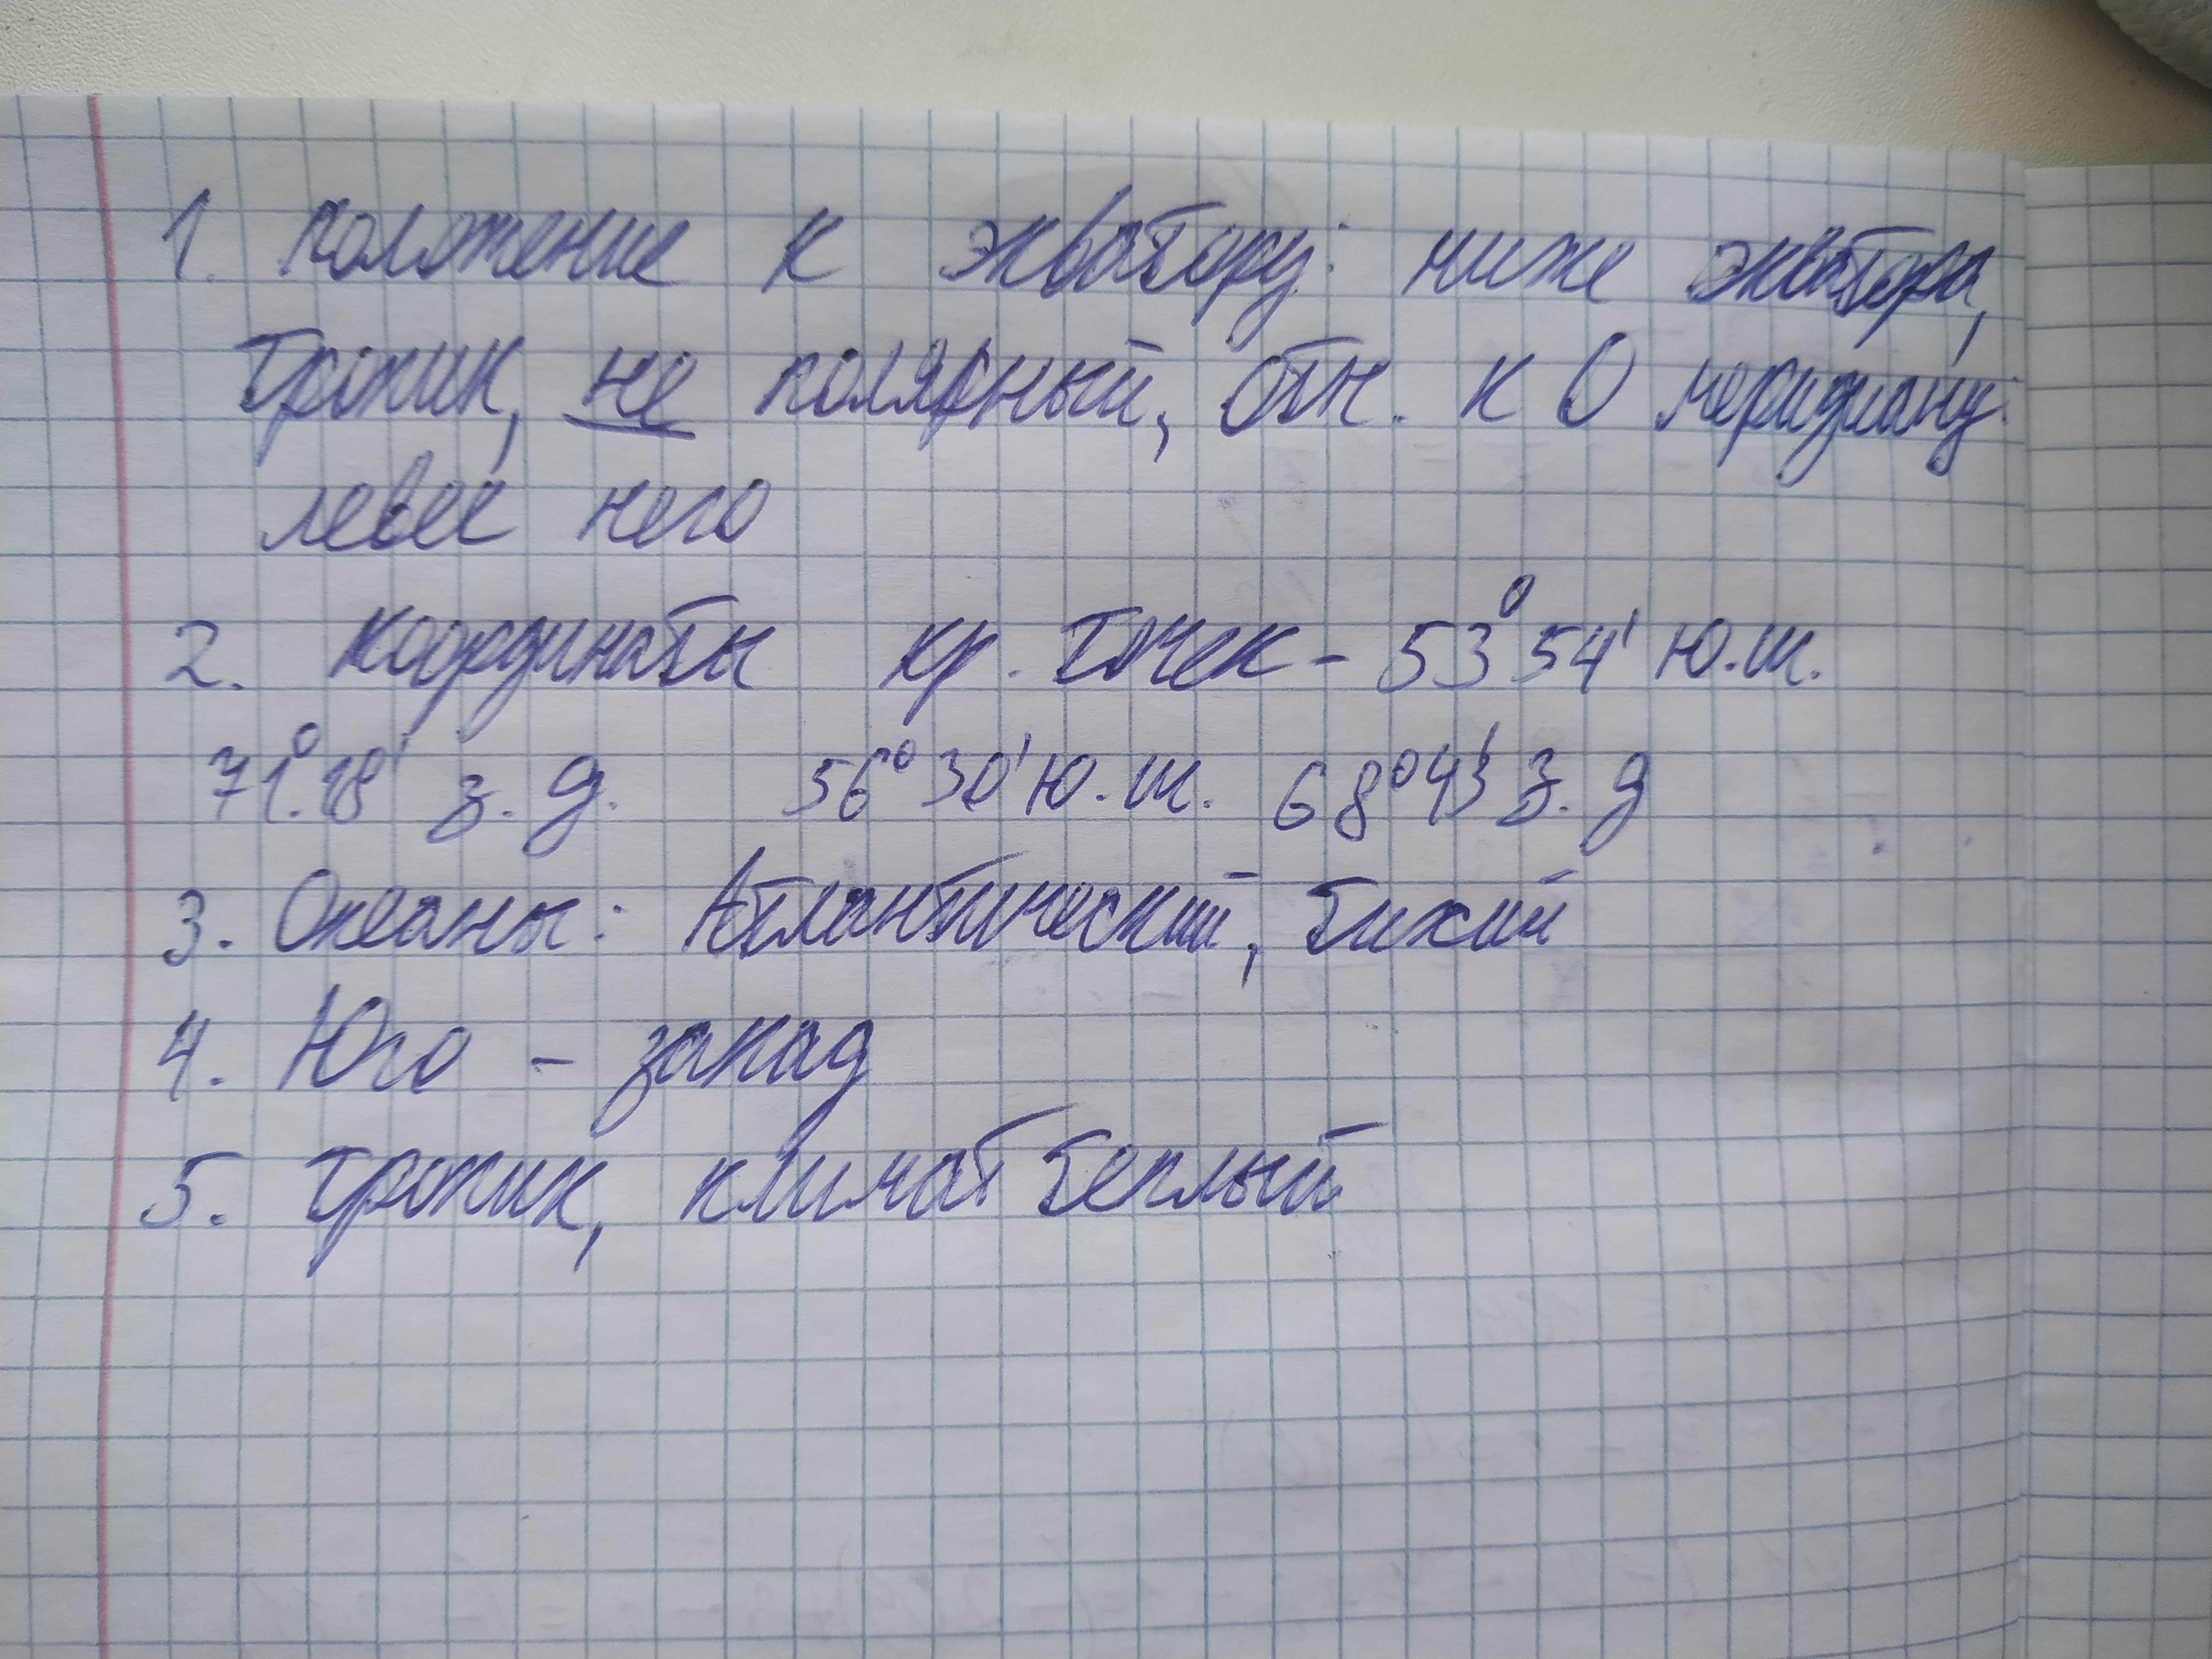 1. положение к экватору: ниже экватора,
тропик, не полярный, отн. к 0 меридиану:
левее него
2. координаты кр. точек - 53°54' ю.ш.
71°.18' з.д. 56°30' ю.ш. 68°43' з.д
3. Океаны: Атлантический, тихий
4. Юго - запад
5. тропик, климат теплый